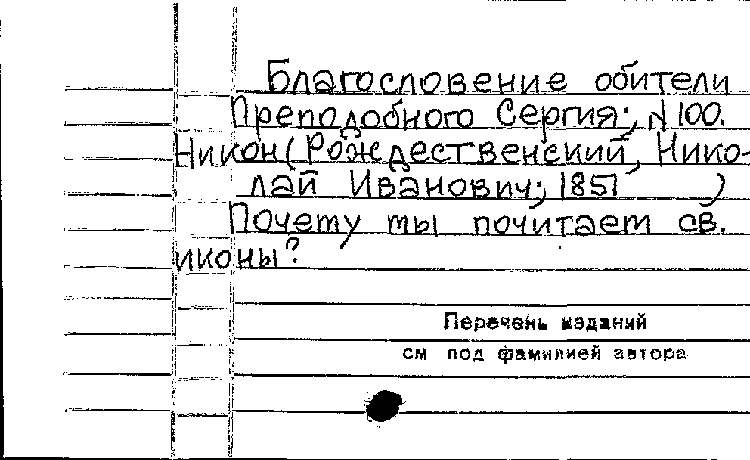 Благословение обители
Преподобного Сергия; N 100.
Никон (Рождественский, Нико-
лай Иванович; 1851 )
Почему ты почитаем св.
иконы?
Перечень изданий
см под фамилией автора